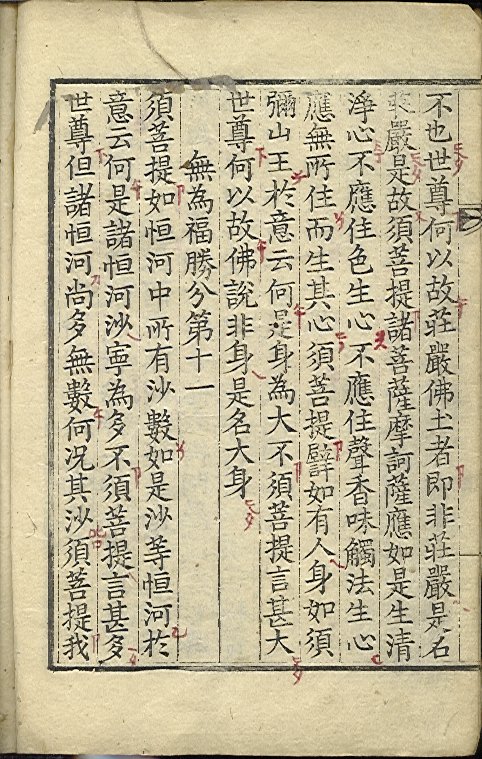 不也世尊何以故莊嚴佛土者即非莊嚴是名
莊嚴是故須菩提諸菩薩摩訶薩應如是生清
淨心不應住色生心不應住聲香味觸法生心
應無所住而生其心須菩提譬如有人身如須
彌山王於意云何是身為大不須菩提言甚大
世尊何以故佛說非身是名大身
無為福勝分第十一
須菩提如恒河中所有沙數如是沙等恒河於
意云何是諸恒河沙寧為多不須菩提言甚多
世尊但諸恒河尚多無數何況其沙須菩提我